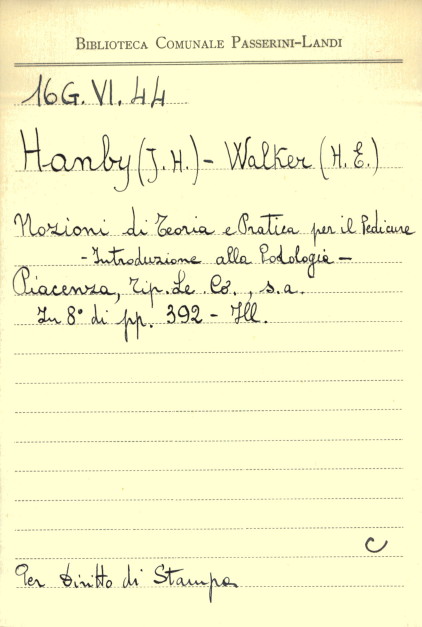 BIBLIOTECA COMUNALE PASSERINI-LANDI
16G. VI. 44
Hanby (J. H.) - Walker (H. E.)
Nozioni di Teoria e Pratica per il Pedicure
- Introduzione alla Podologia -
Piacenza, Tip. Le. Co., s.a.
In 8° di pp. 392 - Ill.
C
Per Diritto di Stampa